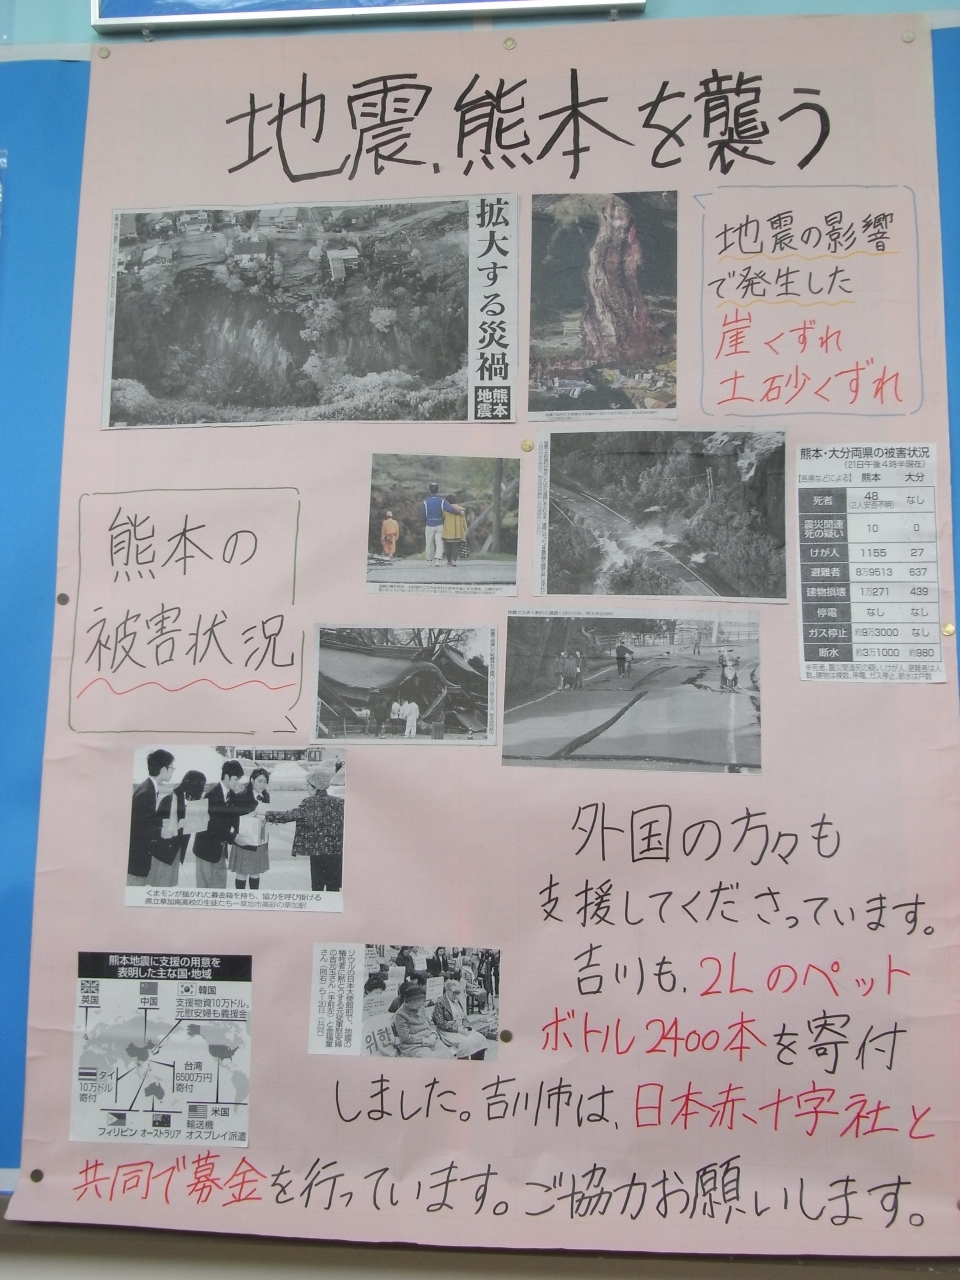 地震、熊本を襲う
拡大する災禍
熊本
地震
地震の影響
で発生した
崖くずれ
土砂くずれ
熊本・大分両県の被害状況
(21日午後4時半現在)
【各県などによる】 熊本 大分
死者 48 (2人安否不明) なし
震災関連死の疑い 10 0
けが人 1155 27
避難者 8万9513 637
建物損壊 1万271 439
停電 なし なし
ガス停止 約9万3000 なし
断水 約3万1000 約980
熊本の
被害状況
くまモンが描かれた募金箱を持ち、協力を呼び掛ける
県立草加南高校の生徒たち＝草加市高砂の草加駅
外国の方々も
支援してくださっています。
吉川も、2Lのペット
ボトル2400本を寄付
しました。吉川市は、日本赤十字社と
共同で募金を行っています。ご協力お願いします。
熊本地震に支援の用意を
表明した主な国・地域
英国
中国
韓国
支援物資10万ドル。
元慰安婦も義援金
タイ
10万ドル
寄付
台湾
6500万円
寄付
米国
輸送機
オスプレイ派遣
フィリピン オーストラリア
ソウルの日本大使館前で、地震の
犠牲者に黙とうする元従軍慰安婦
위한